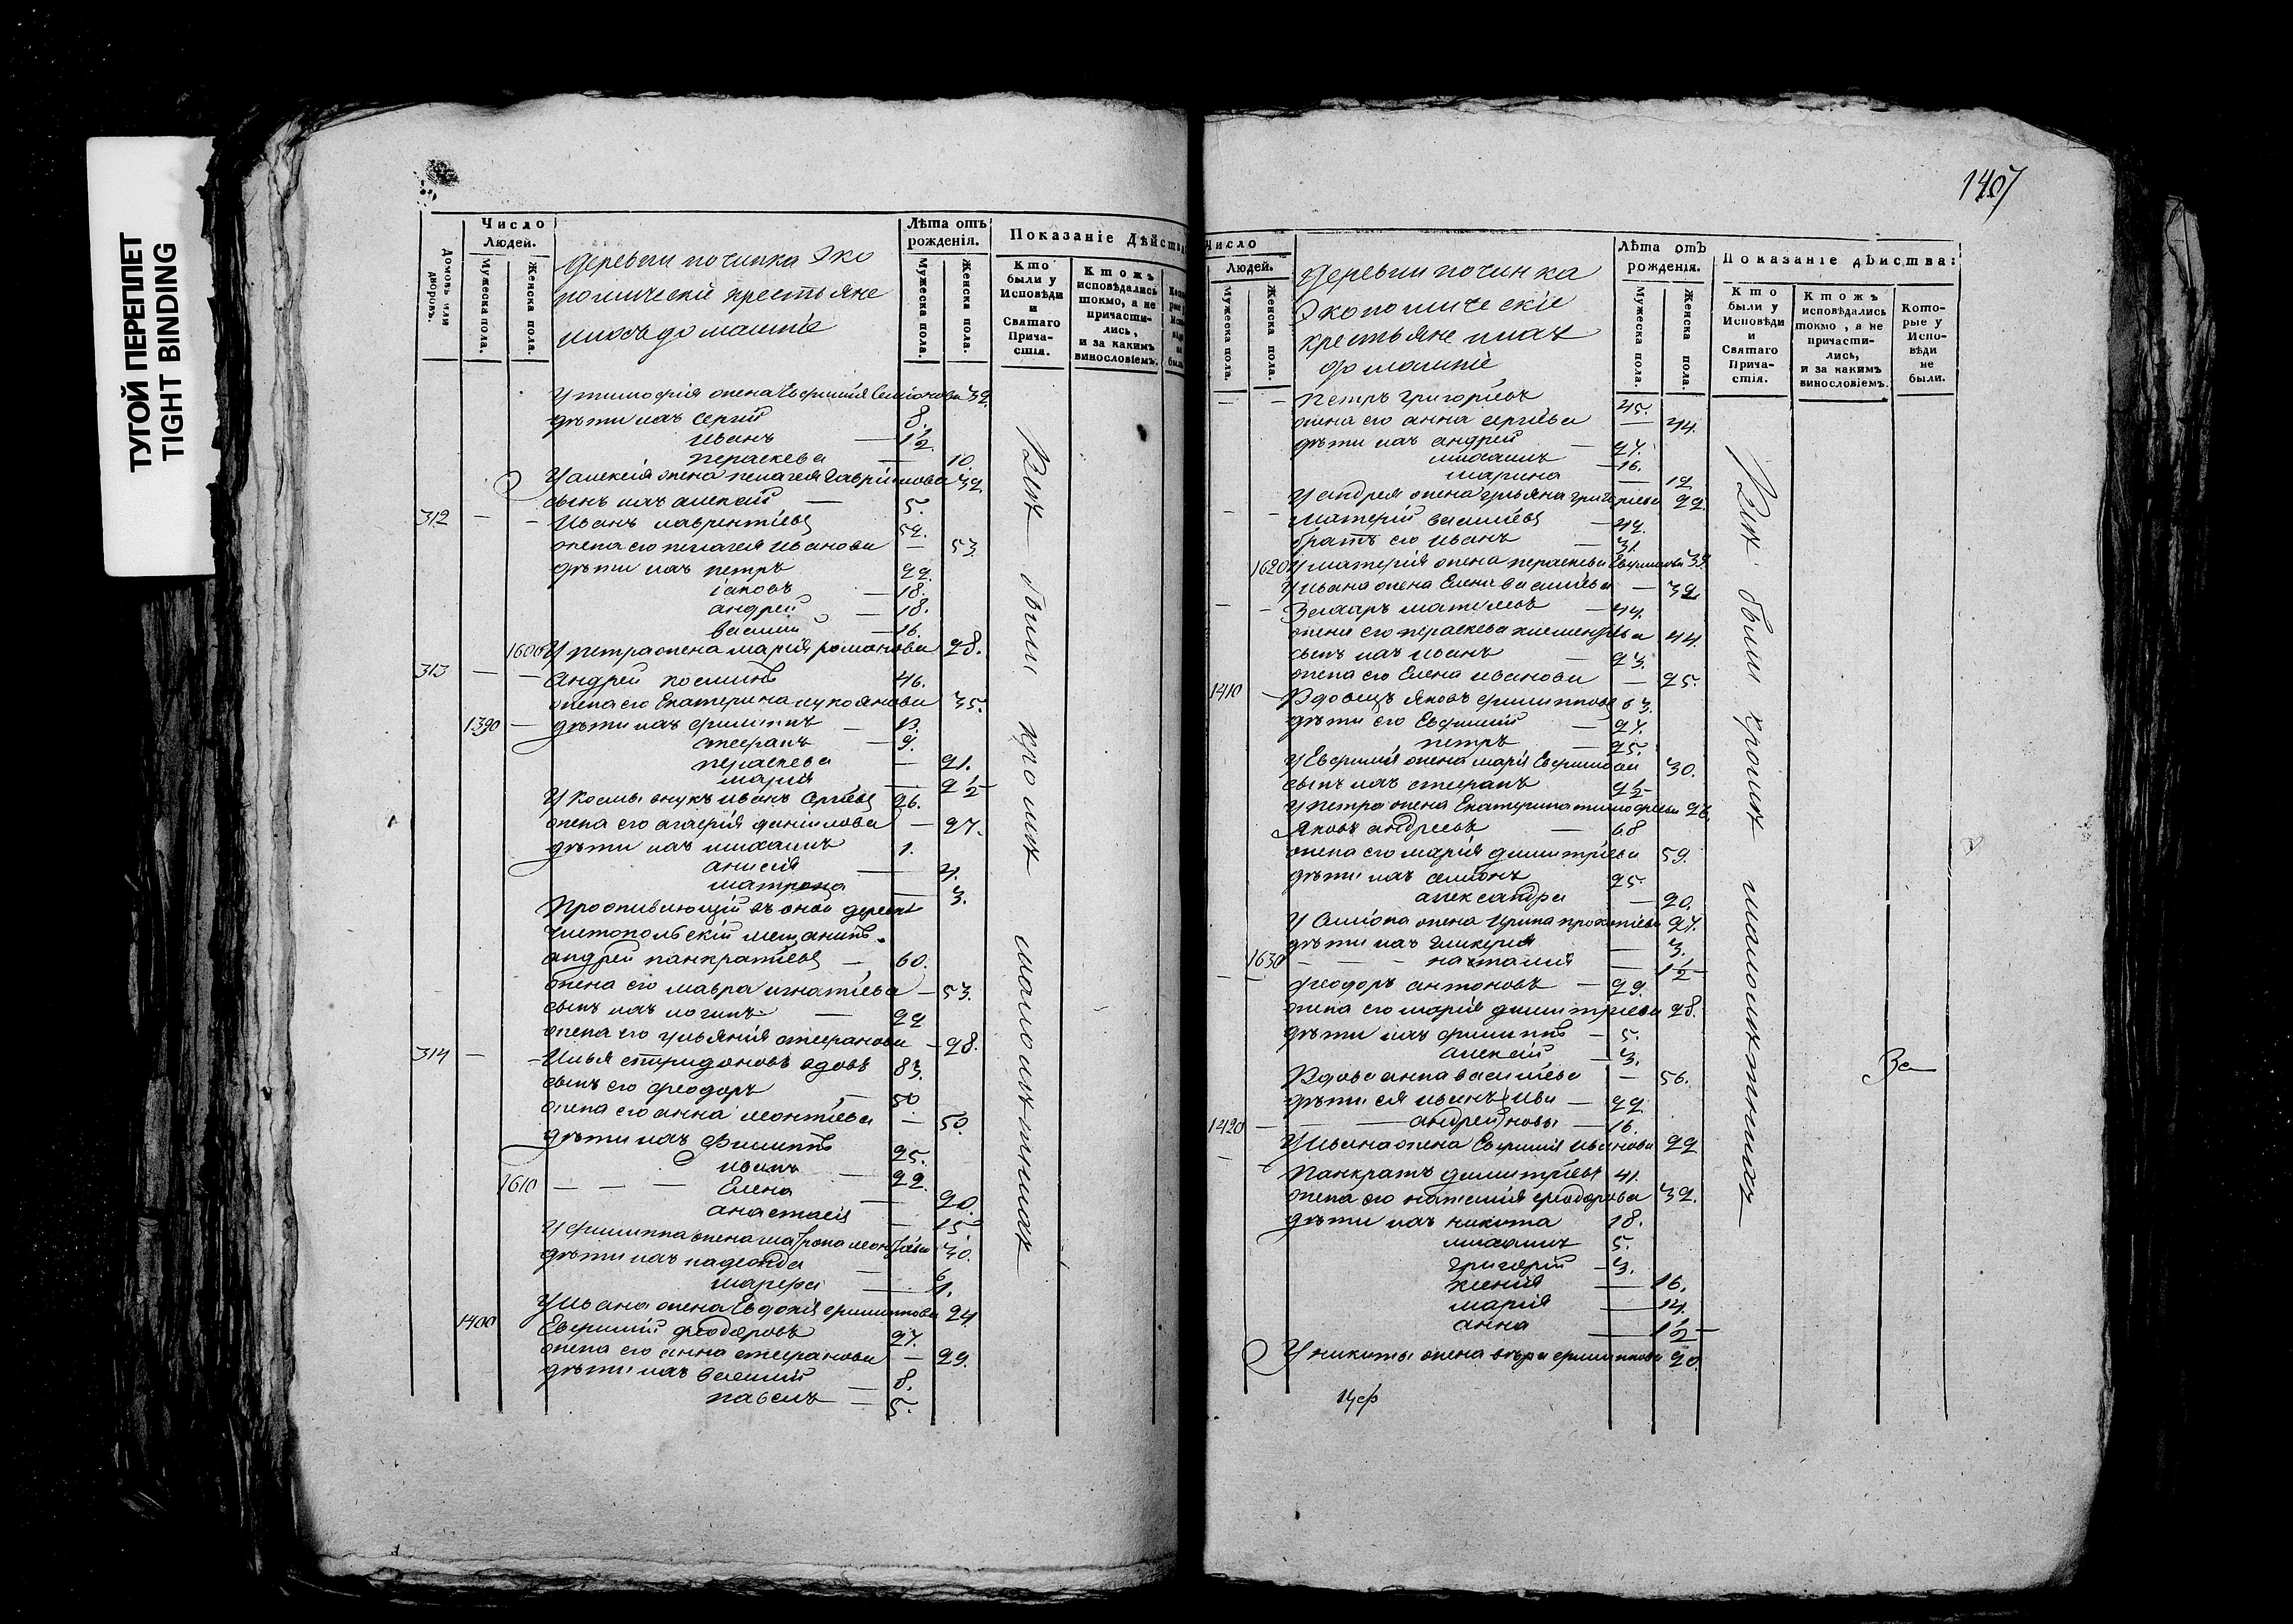 ТУГОЙ ПЕРЕПЛЕТ
TIGHT BINDING
Домовъ или дворовъ.
Число Людей.
Мужеска пола.
Женска пола.
деревни починка Эко
номическiе крестьяне
ихъ домашнiе
Лѣта отъ рожденiя.
Мужеска пола.
Женска пола.
Показанiе Дѣйства
Кто были у Исповѣди и Святаго Причастiя.
Ктожъ исповѣдались токмо, а не причастились, и за какимъ винословiемъ.
У тимофея жена Евфимiя Семiонова 32.
дѣти ихъ Сергiй 8.
Иванъ — 1½
Пераскева — 10.
У алексiя жена пелагея Гаврилова 32.
сынъ ихъ алексiй — 5.
312 — — Иванъ лаврентiевъ 52.
жена его пелагея иванова — 53.
дѣти ихъ петръ 22.
iаковъ — 18.
андрей — 18.
василiй — 16.
1600 У петра жена марiя романова 28.
313 — — Андрей козминъ 46.
жена его Екатерина лукоянова 35.
1390 — дѣти ихъ филиппъ — 13.
стефанъ — 9.
пераскева — 21.
марiя — 2½
У Космы внукъ иванъ Сергiевъ 26.
жена его агафiя данiилова — 27.
дѣти ихъ михаилъ 1.
анисiя — 4.
матрона — 3.
Проживающiй въ оной деревне
Чистопольскiй мещанинъ.
андрей панкратiевъ — 60.
жена его мавра игнатiева — 53.
сынъ ихъ логинъ — 22
жена его ульянiя стефанова — 28.
314 — — Илья спиридоновъ вдовъ 83.
сынъ его феодоръ — 50.
жена его анна леонтiева — 50.
дѣти ихъ Филиппъ 25.
иванъ — 22.
1610 — — — Елена — 20.
анастасiя — 15.
У филиппа жена матрона леонтiева 30.
дѣти ихъ надежда — 6.
марфа — 1.
У ивана жена Евдокiя филиппова 24.
1400 Евфимiй феодоровъ 27.
жена его анна стефанова — 29.
дѣти ихъ василiй — 8.
павелъ — 5.
Всѣ были кромѣ малолѣтнихъ
1407
Число Людей.
Мужеска пола.
Женска пола.
деревни починка
Экономическiе
крестьяне ихъ
домашнiе
Лѣта отъ рожденiя.
Мужеска пола.
Женска пола.
Показанiе дѣиства:
Кто были у Исповѣди и Святаго Причастiя.
Ктожъ исповѣдались токмо, а не причастились, и за какимъ винословiемъ.
Которые у Исповѣди не были.
— — Петръ григорiевъ 45.
жена его анна сергiева — 44.
дѣти ихъ андрей — 24.
михаилъ — 16.
марина — 12
У андрея жена ульяна григорiева 22.
— — Матвѣй василiевъ — 42.
братъ его иванъ — 31.
1620 У матвѣя жена пераскева Евфимова 39.
У ивана жена Елена василiева — 32.
— — Захаръ матвѣевъ — 44.
жена его пераскева климентiева 44.
сынъ ихъ иванъ — 23.
жена его Елена иванова — 25.
1410 — Вдовецъ Яковъ филипповъ 63.
дѣти его Евфимiй — 27.
петръ — 25.
У Евфимiя жена марiя Евфимова 30.
сынъ ихъ стефанъ 2½
У петра жена Екатерина тимофеева 26.
Яковъ андреевъ — 68
жена его марiя димитрiева 59.
дѣти ихъ семiонъ 25.
александра — 20.
У Семiона жена Ирина прокопiева 27.
дѣти ихъ гликерiя — 3.
1630 — — — наталiя — 1½
— — феодоръ антоновъ — 29.
жена его марiя димитрiева 28.
дѣти ихъ филиппъ — 5.
алексiй — 3.
Вдова анна василiева — 56.
дѣти ея иванъ Ива — 22
1420 — — андрей новы — 16.
У ивана жена Евфимiя иванова 22
— Панкратъ димитрiевъ 41.
жена его наталiя феодорова 32.
дѣти ихъ никита 18.
михаилъ 5.
григорiй — 3.
ксенiя — 16.
марiя — 14.
анна — 1½
У никиты жена вѣра филиппова 20.
Всѣ были кромѣ малолѣтнихъ
За